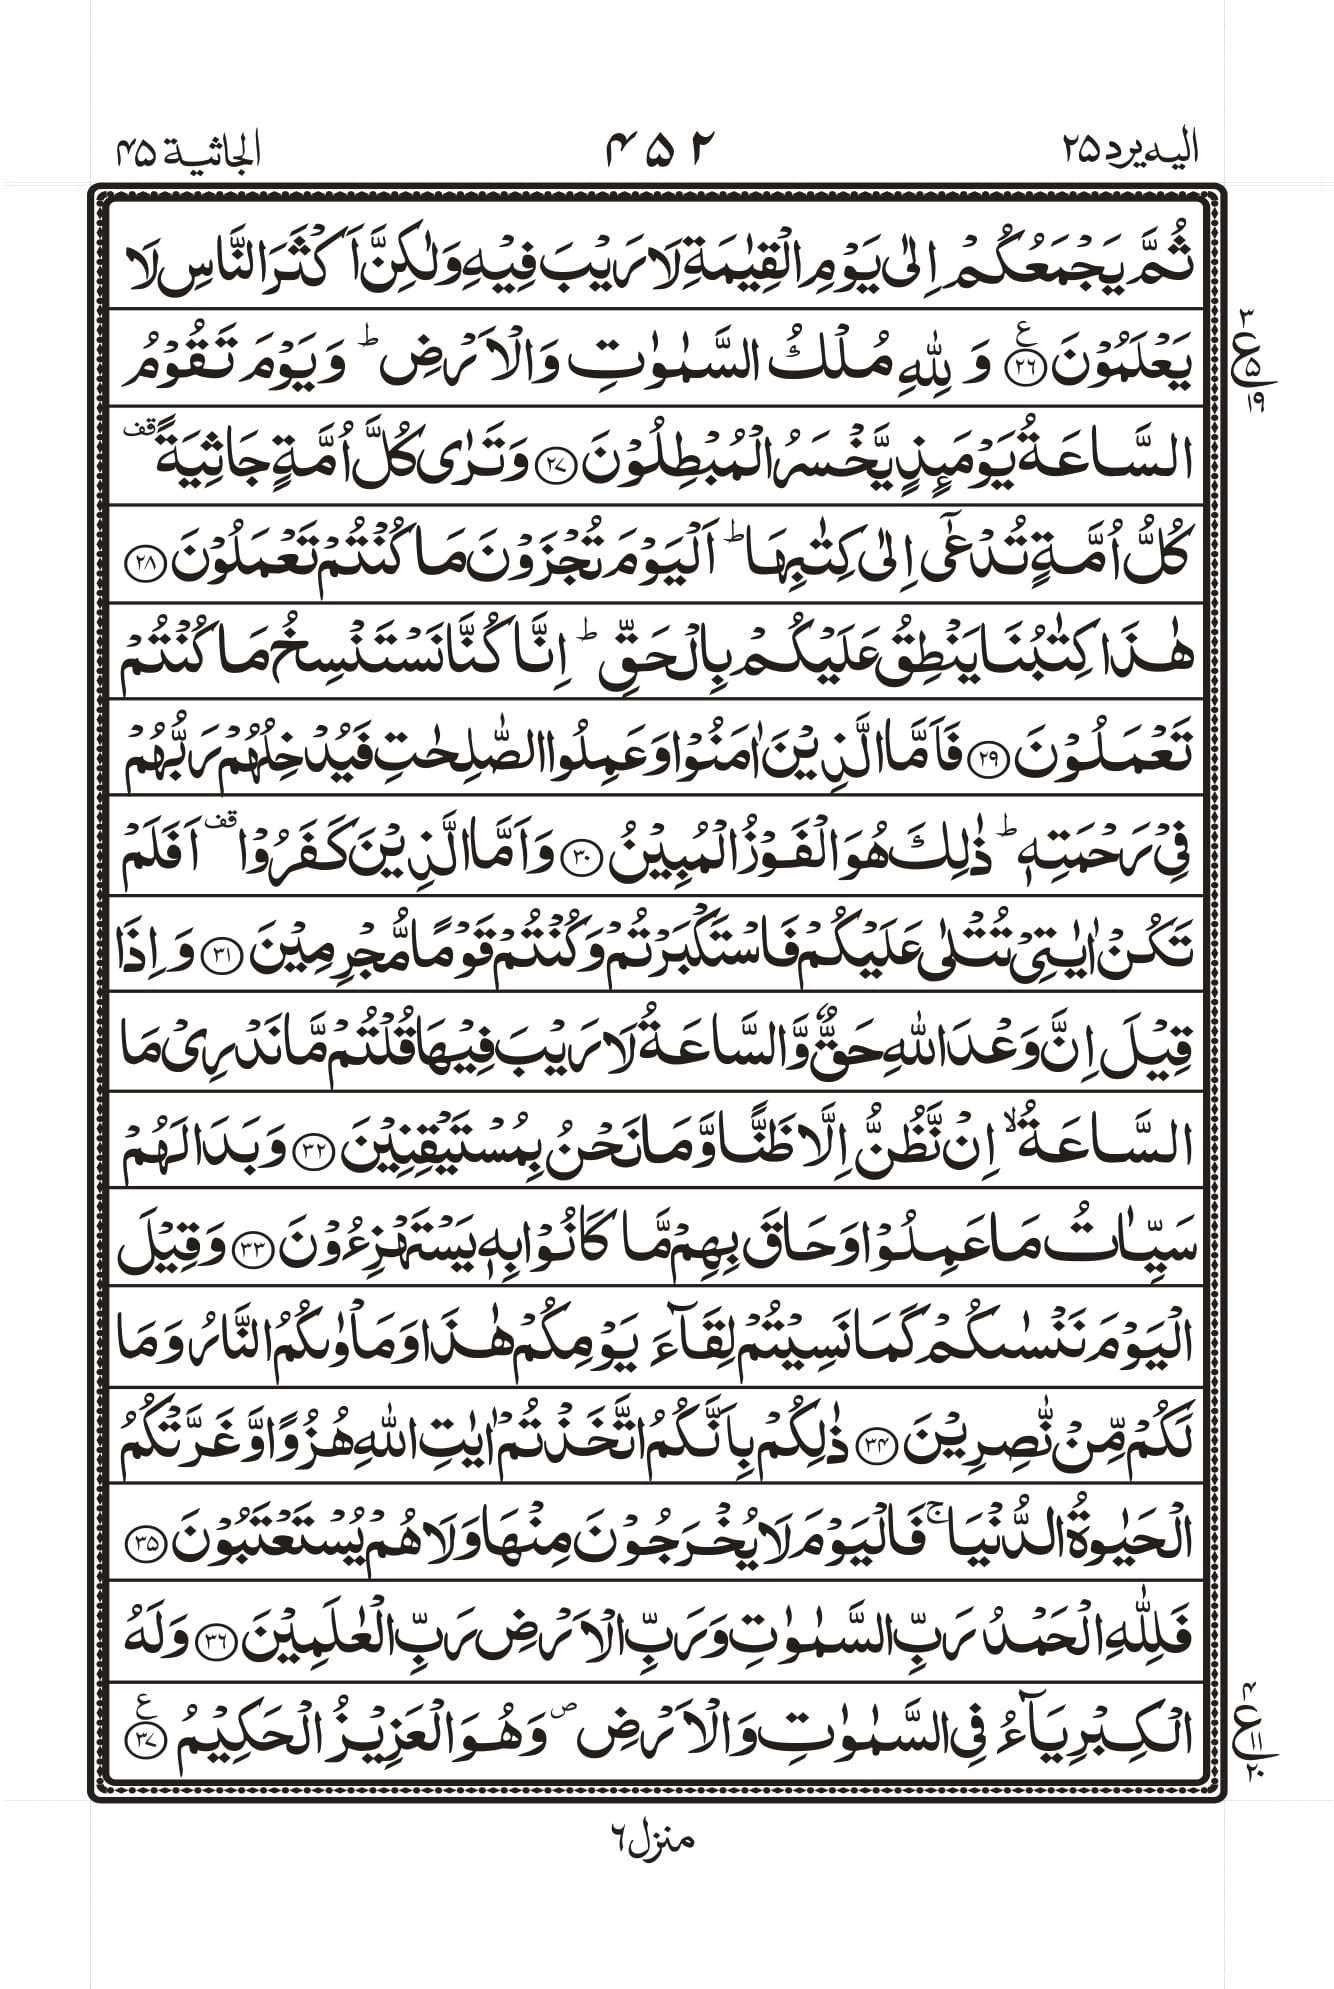 الیہ یرد ۲۵
۴۵۲
الجاثیة ۴۵
ثُمَّ يَجْمَعُكُمْ اِلٰى يَوْمِ الْقِيٰمَةِ لَا رَيْبَ فِيْهِ وَلٰكِنَّ اَكْثَرَ النَّاسِ لَا
يَعْلَمُوْنَ ۲۶ ع وَ لِلّٰهِ مُلْكُ السَّمٰوٰتِ وَالْاَرْضِ ؕ وَيَوْمَ تَقُوْمُ
۳ ع ۵ ۱۹
السَّاعَةُ يَوْمَىِٕذٍ يَّخْسَرُ الْمُبْطِلُوْنَ ۲۷ وَتَرٰى كُلَّ اُمَّةٍ جَاثِيَةً قف
كُلُّ اُمَّةٍ تُدْعٰۤى اِلٰى كِتٰبِهَا ؕ اَلْيَوْمَ تُجْزَوْنَ مَا كُنْتُمْ تَعْمَلُوْنَ ۲۸
هٰذَا كِتٰبُنَا يَنْطِقُ عَلَيْكُمْ بِالْحَقِّ ؕ اِنَّا كُنَّا نَسْتَنْسِخُ مَا كُنْتُمْ
تَعْمَلُوْنَ ۲۹ فَاَمَّا الَّذِيْنَ اٰمَنُوْا وَعَمِلُوا الصّٰلِحٰتِ فَيُدْخِلُهُمْ رَبُّهُمْ
فِيْ رَحْمَتِهٖ ؕ ذٰلِكَ هُوَ الْفَوْزُ الْمُبِيْنُ ۳۰ وَاَمَّا الَّذِيْنَ كَفَرُوْا قف اَفَلَمْ
تَكُنْ اٰيٰتِيْ تُتْلٰى عَلَيْكُمْ فَاسْتَكْبَرْتُمْ وَكُنْتُمْ قَوْمًا مُّجْرِمِيْنَ ۳۱ وَاِذَا
قِيْلَ اِنَّ وَعْدَ اللّٰهِ حَقٌّ وَّالسَّاعَةُ لَا رَيْبَ فِيْهَا قُلْتُمْ مَّا نَدْرِيْ مَا
السَّاعَةُ ۙ اِنْ نَّظُنُّ اِلَّا ظَنًّا وَّمَا نَحْنُ بِمُسْتَيْقِنِيْنَ ۳۲ وَبَدَا لَهُمْ
سَيِّاٰتُ مَا عَمِلُوْا وَحَاقَ بِهِمْ مَّا كَانُوْا بِهٖ يَسْتَهْزِءُوْنَ ۳۳ وَقِيْلَ
الْيَوْمَ نَنْسٰىكُمْ كَمَا نَسِيْتُمْ لِقَآءَ يَوْمِكُمْ هٰذَا وَمَاْوٰىكُمُ النَّارُ وَمَا
لَكُمْ مِّنْ نّٰصِرِيْنَ ۳۴ ذٰلِكُمْ بِاَنَّكُمُ اتَّخَذْتُمْ اٰيٰتِ اللّٰهِ هُزُوًا وَّغَرَّتْكُمُ
الْحَيٰوةُ الدُّنْيَا ۚ فَالْيَوْمَ لَا يُخْرَجُوْنَ مِنْهَا وَلَا هُمْ يُسْتَعْتَبُوْنَ ۳۵
فَلِلّٰهِ الْحَمْدُ رَبِّ السَّمٰوٰتِ وَرَبِّ الْاَرْضِ رَبِّ الْعٰلَمِيْنَ ۳۶ وَلَهُ
الْكِبْرِيَآءُ فِي السَّمٰوٰتِ وَالْاَرْضِ ص وَهُوَ الْعَزِيْزُ الْحَكِيْمُ ۳۷ ع
۴ ع ۱۱ ۲۰
منزل ۶